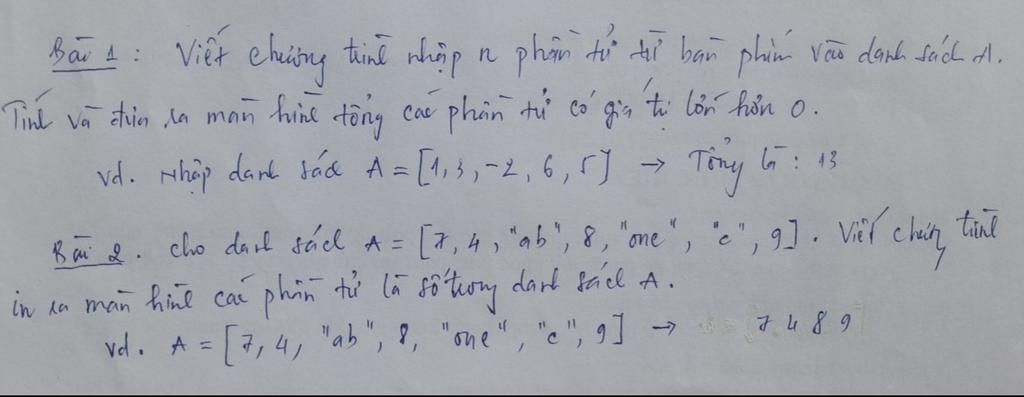 Bài 1: Viết chương trình nhập n phần tử từ bàn phím vào danh sách A.
Tính và đưa ra màn hình tổng các phần tử có giá trị lớn hơn 0.
vd. Nhập danh sách A = [1, 3, -2, 6, 5] → Tổng là: 13
Bài 2. Cho danh sách A = [7, 4, "ab", 8, "one", "c", 9]. Viết chương trình
in ra màn hình các phần tử là số trong danh sách A.
vd. A = [7, 4, "ab", 8, "one", "c", 9] → 7 4 8 9